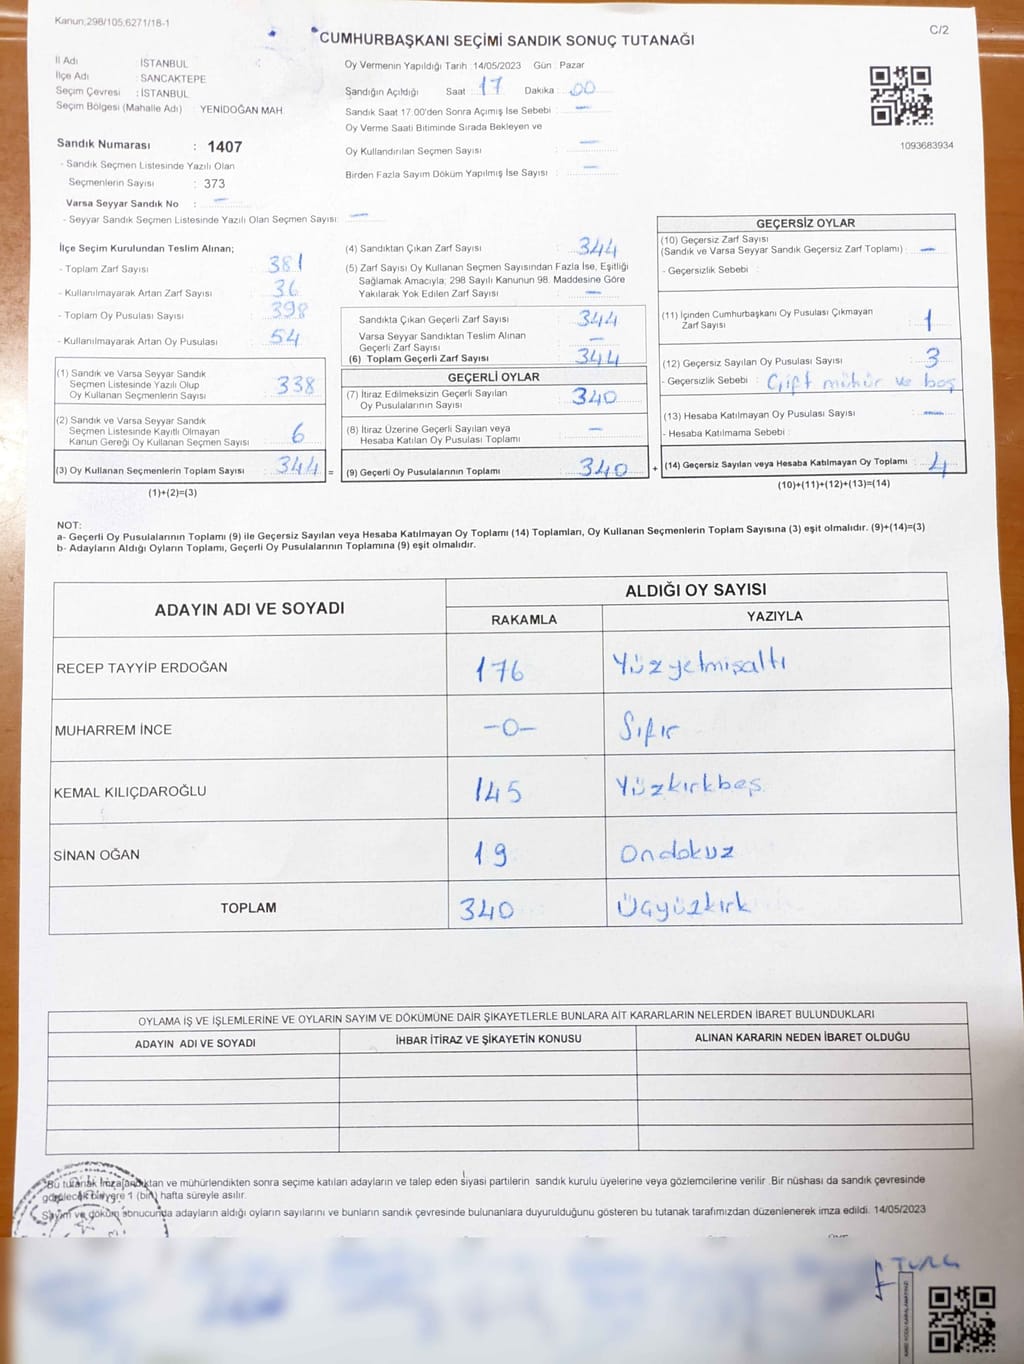 Kanun;298/105,6271/18-1
C/2
CUMHURBAŞKANI SEÇİMİ SANDIK SONUÇ TUTANAĞI
İl Adı : İSTANBUL
İlçe Adı : SANCAKTEPE
Seçim Çevresi : İSTANBUL
Seçim Bölgesi (Mahalle Adı) : YENİDOĞAN MAH.
Oy Vermenin Yapıldığı Tarih :14/05/2023 Gün : Pazar
Sandığın Açıldığı Saat : 17 Dakika : 00
Sandık Saat 17.00'den Sonra Açımış İse Sebebi : —
Oy Verme Saati Bitiminde Sırada Bekleyen ve
Oy Kullandırılan Seçmen Sayısı : —
Birden Fazla Sayım Döküm Yapılmış İse Sayısı : —
1093683934
Sandık Numarası : 1407
- Sandık Seçmen Listesinde Yazılı Olan
Seçmenlerin Sayısı : 373
Varsa Seyyar Sandık No : —
- Seyyar Sandık Seçmen Listesinde Yazılı Olan Seçmen Sayısı: —
İlçe Seçim Kurulundan Teslim Alınan;
- Toplam Zarf Sayısı : 381
- Kullanılmayarak Artan Zarf Sayısı : 36
- Toplam Oy Pusulası Sayısı : 398
- Kullanılmayarak Artan Oy Pusulası : 54
(1) Sandık ve Varsa Seyyar Sandık
Seçmen Listesinde Yazılı Olup
Oy Kullanan Seçmenlerin Sayısı : 338
(2) Sandık ve Varsa Seyyar Sandık
Seçmen Listesinde Kayıtlı Olmayan
Kanun Gereği Oy Kullanan Seçmen Sayısı : 6
(3) Oy Kullanan Seçmenlerin Toplam Sayısı : 344 =
(1)+(2)=(3)
(4) Sandıktan Çıkan Zarf Sayısı : 344
(5) Zarf Sayısı Oy Kullanan Seçmen Sayısından Fazla İse, Eşitliği
Sağlamak Amacıyla; 298 Sayılı Kanunun 98. Maddesine Göre
Yakılarak Yok Edilen Zarf Sayısı : —
Sandıkta Çıkan Geçerli Zarf Sayısı : 344
Varsa Seyyar Sandıktan Teslim Alınan
Geçerli Zarf Sayısı : —
(6) Toplam Geçerli Zarf Sayısı : 344
GEÇERLİ OYLAR
(7) İtiraz Edilmeksizin Geçerli Sayılan
Oy Pusulalarının Sayısı : 340
(8) İtiraz Üzerine Geçerli Sayılan veya
Hesaba Katılan Oy Pusulası Toplamı : —
(9) Geçerli Oy Pusulalarının Toplamı : 340 +
GEÇERSİZ OYLAR
(10) Geçersiz Zarf Sayısı
(Sandık ve Varsa Seyyar Sandık Geçersiz Zarf Toplamı) : —
- Geçersizlik Sebebi :
(11) İçinden Cumhurbaşkanı Oy Pusulası Çıkmayan
Zarf Sayısı : 1
(12) Geçersiz Sayılan Oy Pusulası Sayısı : 3
- Geçersizlik Sebebi : Çift mühür ve boş
(13) Hesaba Katılmayan Oy Pusulası Sayısı : —
- Hesaba Katılmama Sebebi :
(14) Geçersiz Sayılan veya Hesaba Katılmayan Oy Toplamı : 4
(10)+(11)+(12)+(13)=(14)
NOT:
a- Geçerli Oy Pusulalarının Toplamı (9) ile Geçersiz Sayılan veya Hesaba Katılmayan Oy Toplamı (14) Toplamları, Oy Kullanan Seçmenlerin Toplam Sayısına (3) eşit olmalıdır. (9)+(14)=(3)
b- Adayların Aldığı Oyların Toplamı, Geçerli Oy Pusulalarının Toplamına (9) eşit olmalıdır.
ADAYIN ADI VE SOYADI
ALDIĞI OY SAYISI
RAKAMLA YAZIYLA
RECEP TAYYİP ERDOĞAN 176 Yüzyetmişaltı
MUHARREM İNCE —0— Sıfır
KEMAL KILIÇDAROĞLU 145 Yüzkırkbeş
SİNAN OĞAN 19 Ondokuz
TOPLAM 340 Üçyüzkırk
OYLAMA İŞ VE İŞLEMLERİNE VE OYLARIN SAYIM VE DÖKÜMÜNE DAİR ŞİKAYETLERLE BUNLARA AİT KARARLARIN NELERDEN İBARET BULUNDUKLARI
ADAYIN ADI VE SOYADI İHBAR İTİRAZ VE ŞİKAYETİN KONUSU ALINAN KARARIN NEDEN İBARET OLDUĞU
Bu tutanak İmzalandıktan ve mühürlendikten sonra seçime katılan adayların ve talep eden siyasi partilerin sandık kurulu üyelerine veya gözlemcilerine verilir .Bir nüshası da sandık çevresinde
görülecek bir yere 1 (bir) hafta süreyle asılır.
Sayım ve döküm sonucunda adayların aldığı oyların sayılarını ve bunların sandık çevresinde bulunanlara duyurulduğunu gösteren bu tutanak tarafımızdan düzenlenerek imza edildi. 14/05/2023